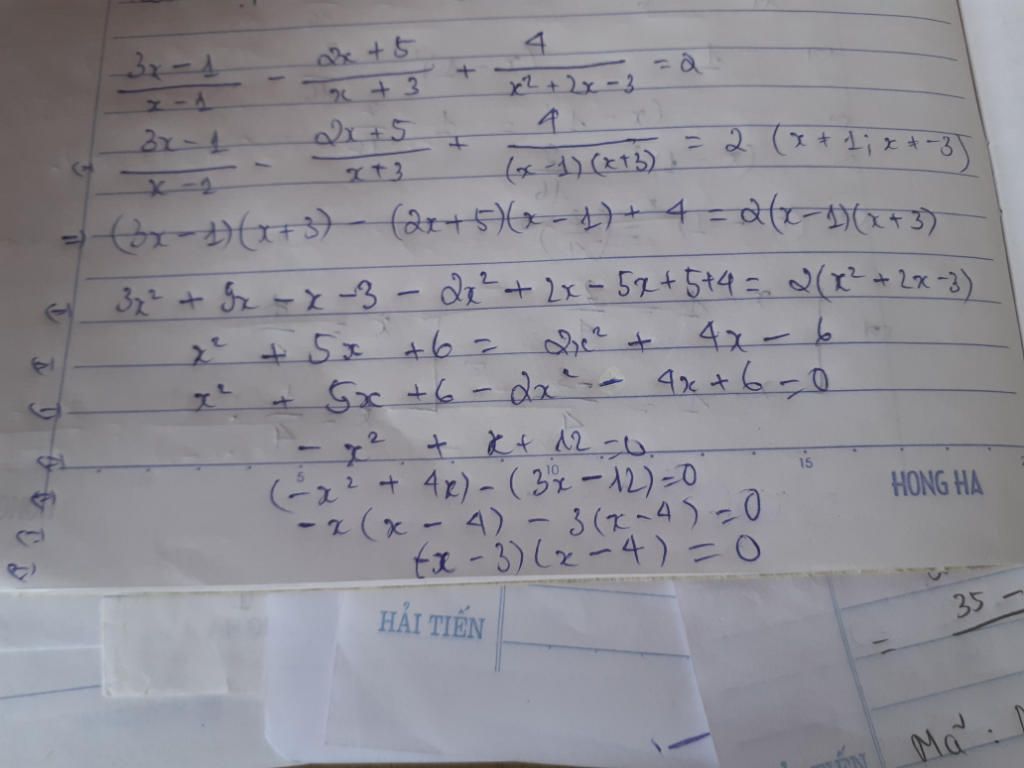 (3x-1)/(x-1) - (2x+5)/(x+3) + 4/(x²+2x-3) = 2
(3x-1)/(x-1) - (2x+5)/(x+3) + 4/((x-1)(x+3)) = 2 (x ≠ 1; x ≠ -3)
⇒ (3x-1)(x+3) - (2x+5)(x-1) + 4 = 2(x-1)(x+3)
⇔ 3x² + 9x - x - 3 - 2x² + 2x - 5x + 5 + 4 = 2(x² + 2x - 3)
⇔ x² + 5x + 6 = 2x² + 4x - 6
⇔ x² + 5x + 6 - 2x² - 4x + 6 = 0
⇔ - x² + x + 12 = 0
⇔ (-x² + 4x) - (3x - 12) = 0
⇔ - x(x - 4) - 3(x - 4) = 0
⇔ (-x - 3)(x - 4) = 0
5 10 15
HONG HA
HẢI TIẾN
35 -
=
Mẫ :
TIẾN